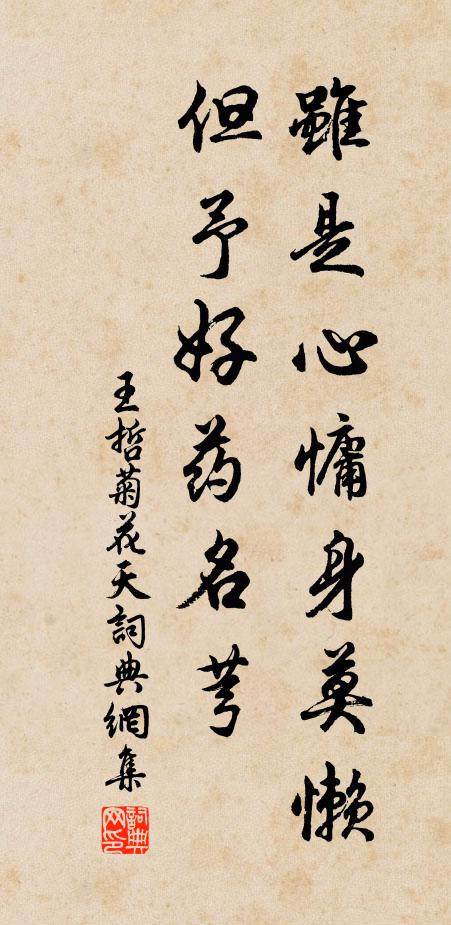 雖是心慵身莫懶
但予好药名芎
王哲菊花天詞典網集
詞典网印